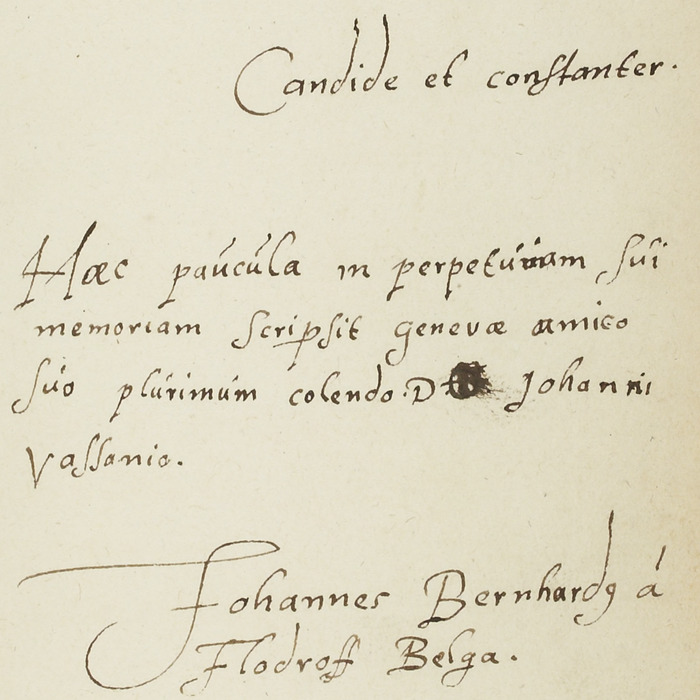 Candide et constanter.
Hæc paucula in perpetuam sui
memoriam scripsit genevæ amico
suo plurimum colendo. D Johanni
Vassanio.
Johannes Bernhardꝰ á
Flodroff Belga.